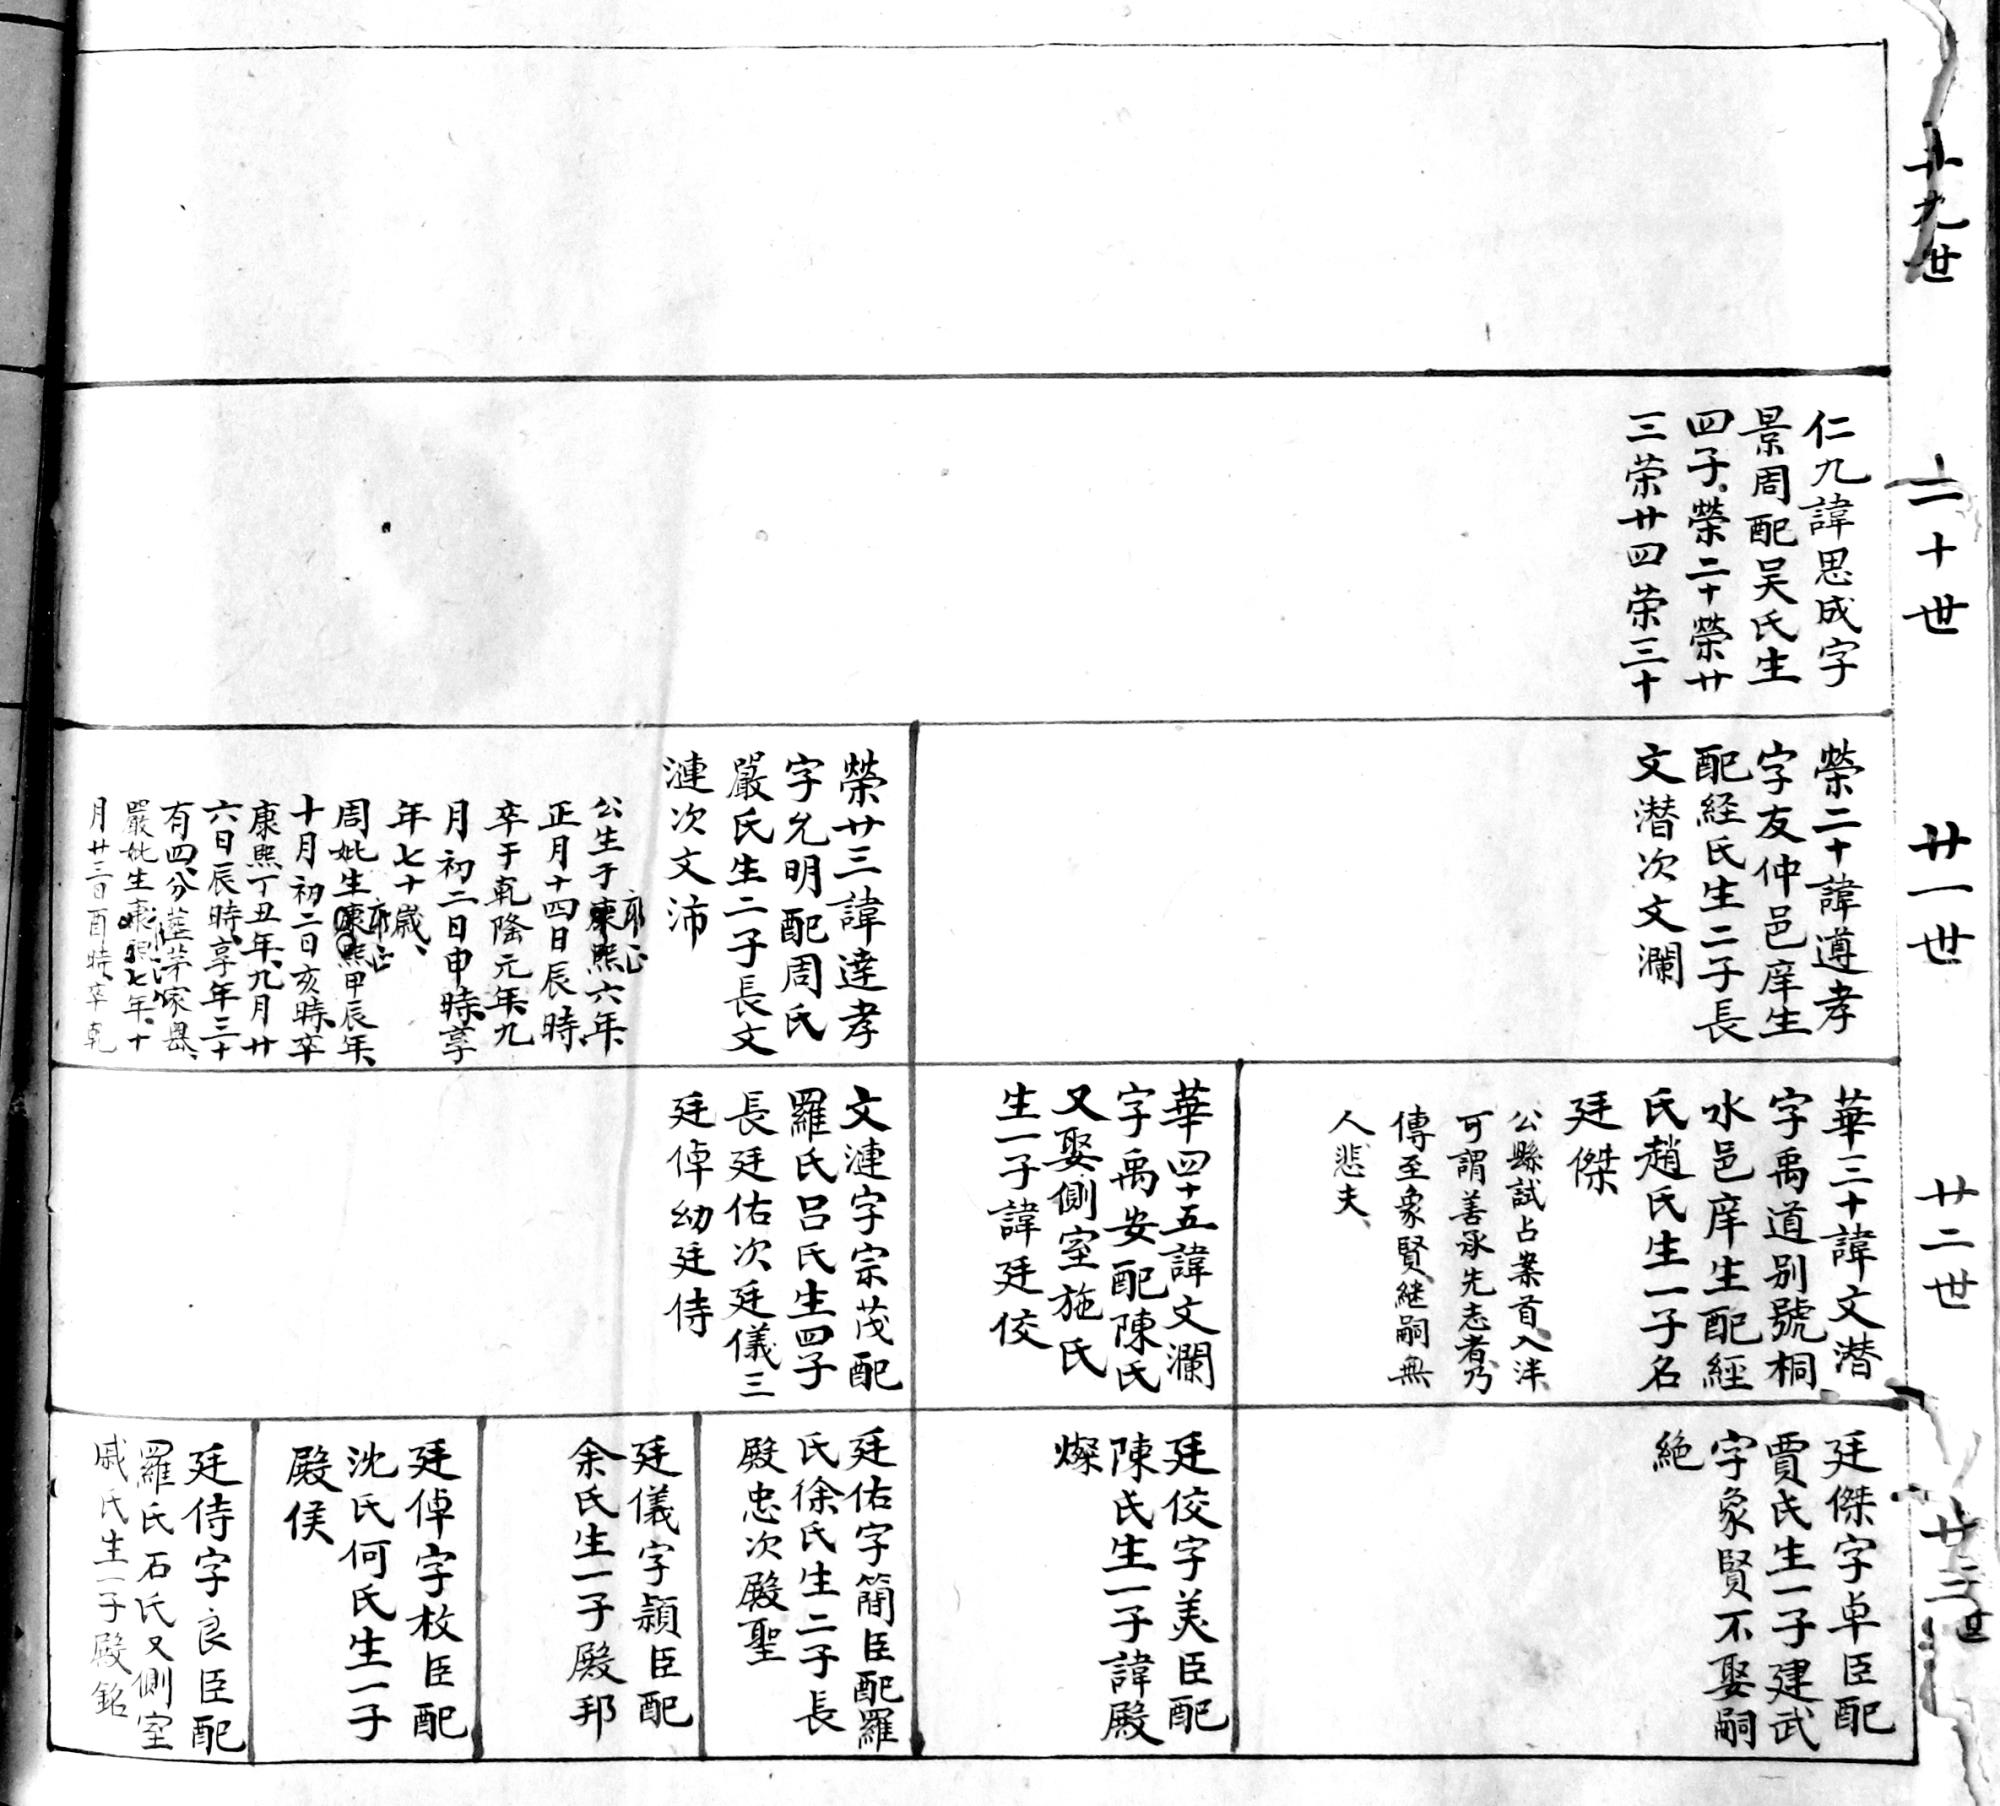 十九世
二十世
仁九諱思成字
景周配吴氏生
四子榮二十榮廿
三荣廿四荣三十
廿一世
榮二十諱遵孝
字友仲邑庠生
配経氏生二子長
文潜次文瀾
榮廿三諱達孝
字允明配周氏
嚴氏生二子長文
漣次文沛
公生于康熙六年
雍正
正月十四日辰時
卒于乾隆元年九
月初二日申時享
年七十歲
周妣生康熙甲辰年
雍正
十月初二日亥時卒
康熙丁丑年九月廿
六日辰時享年三十
有四分塟茅家嶴
嚴妣生康熙七年十
月廿三日酉時卒乾
廿二世
華三十諱文潜
字禹道别號桐
水邑庠生配經
氏趙氏生一子名
廷傑
公縣試占案首入泮
可謂善承先志者乃
傳至象賢継嗣無
人悲夫
華四十五諱文瀾
字禹安配陳氏
又娶側室施氏
生一子諱廷佼
文漣字宗茂配
羅氏吕氏生四子
長廷佑次廷儀三
廷倬幼廷侍
廿三世
廷傑字卓臣配
賈氏生一子建武
字象賢不娶嗣
絶
廷佼字美臣配
陳氏生一子諱殿
燦
廷佑字簡臣配羅
氏徐氏生二子長
殿忠次殿聖
廷儀字頴臣配
余氏生一子殿邦
廷倬字枚臣配
沈氏何氏生一子
殿侯
廷侍字良臣配
羅氏石氏又側室
戚氏生一子殿銘